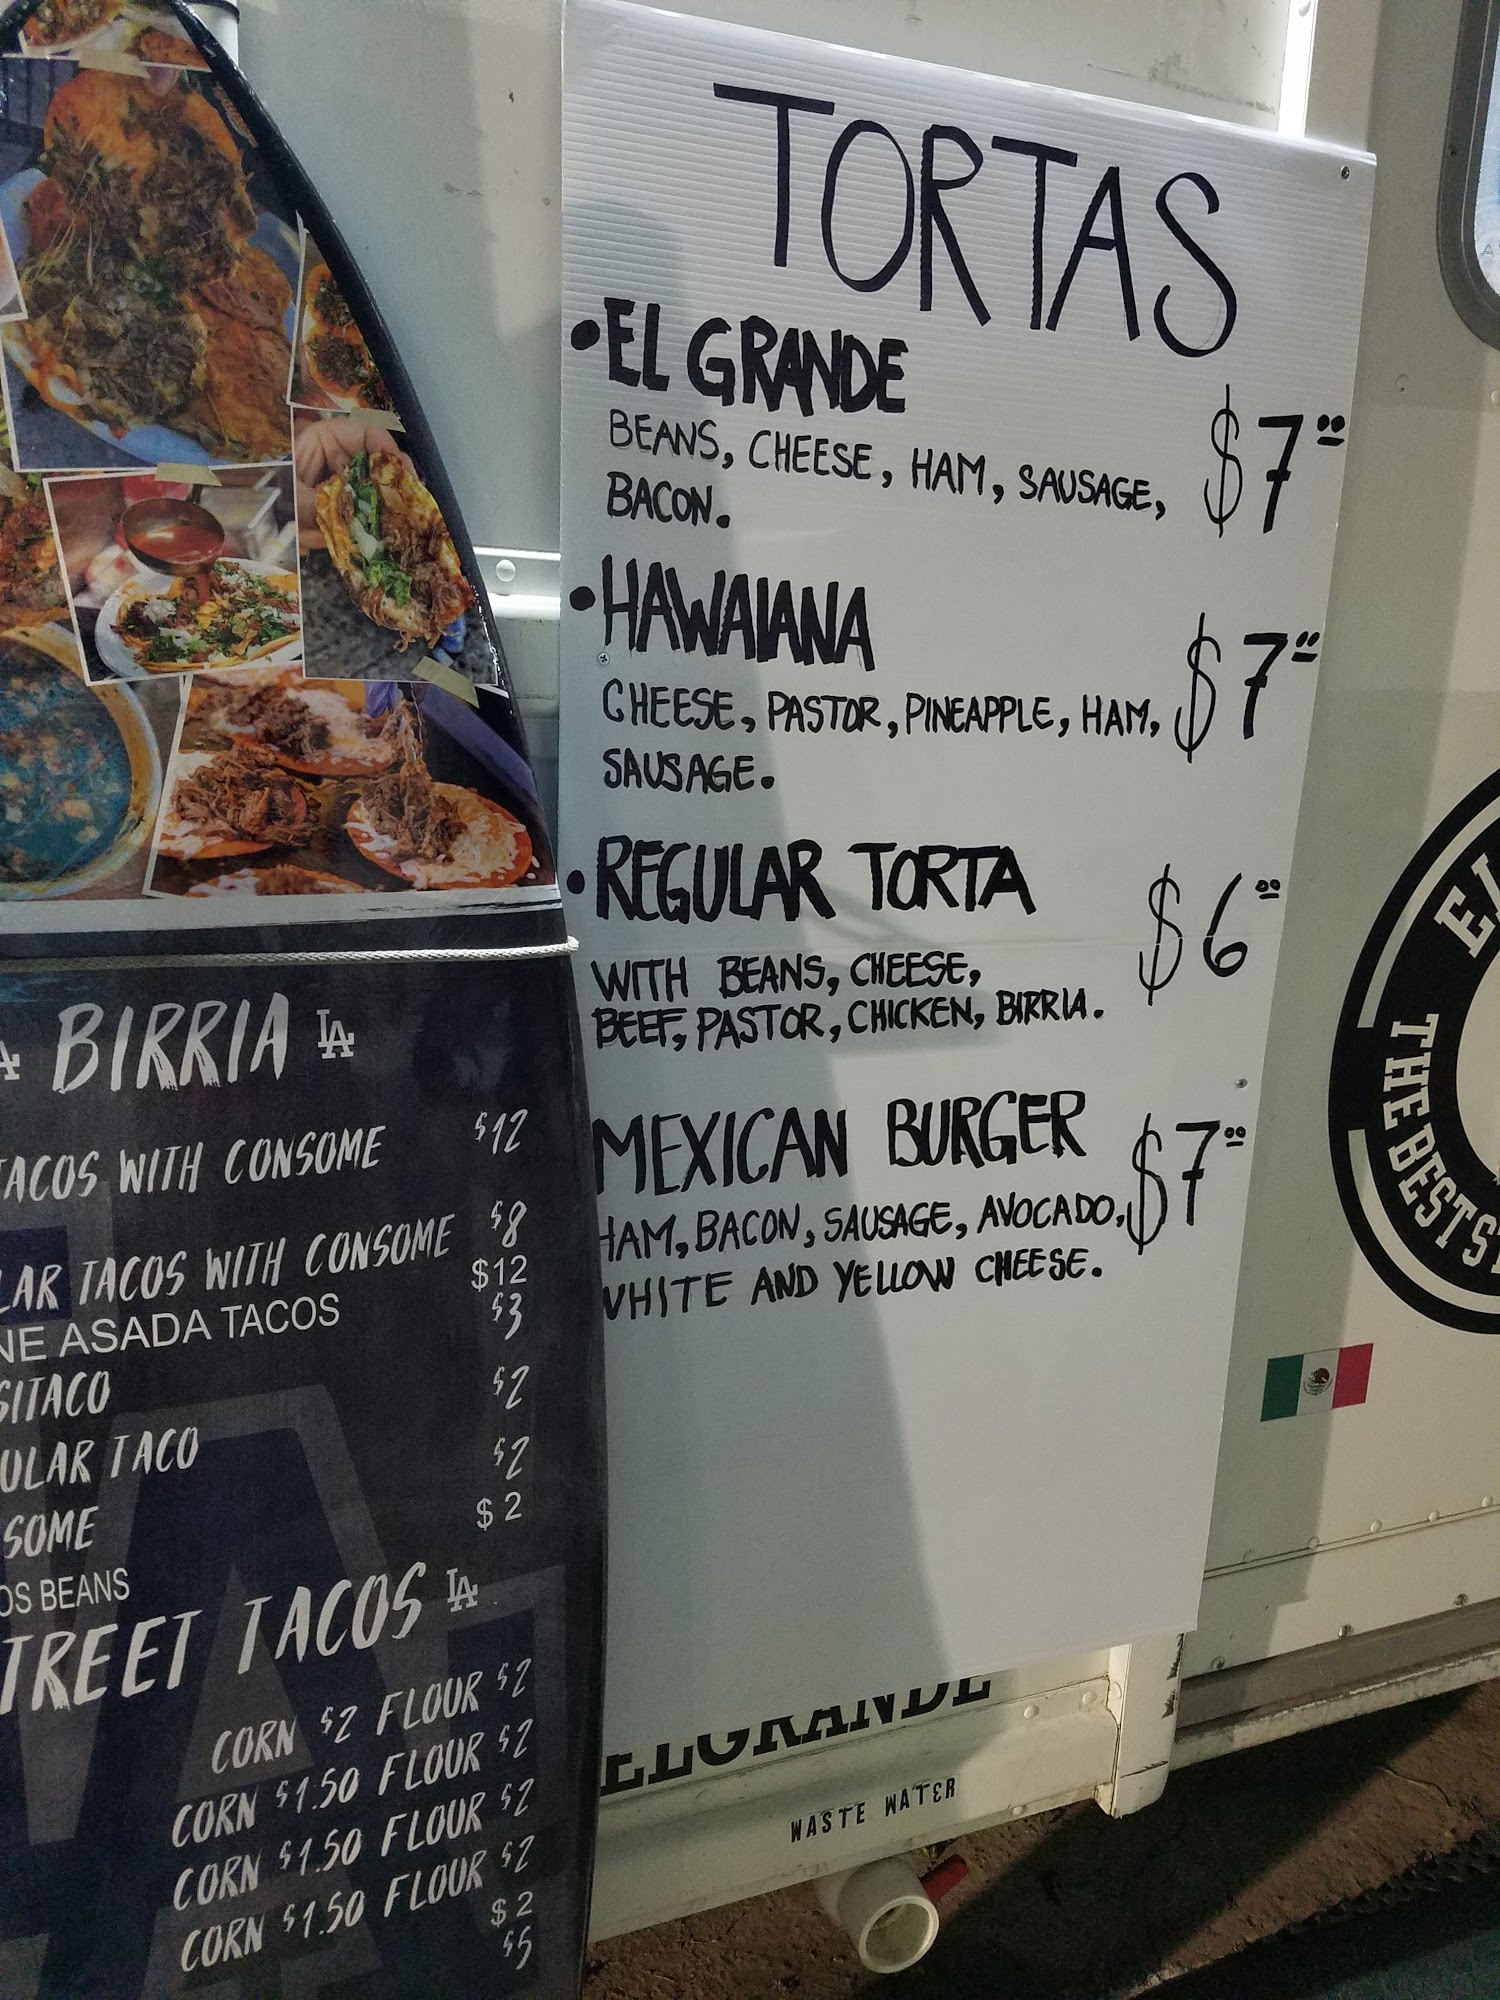 TORTAS
• EL GRANDE
BEANS, CHEESE, HAM, SAUSAGE, $7.00
BACON.
• HAWAIANA
CHEESE, PASTOR, PINEAPPLE, HAM, $7.00
SAUSAGE.
• REGULAR TORTA $6.00
WITH BEANS, CHEESE,
BEEF, PASTOR, CHICKEN, BIRRIA.
MEXICAN BURGER $7.00
HAM, BACON, SAUSAGE, AVOCADO,
WHITE AND YELLOW CHEESE.
BIRRIA LA
TACOS WITH CONSOME $12
TACOS WITH CONSOME $8
ASADA TACOS $12
$3
TACO $2
$2
BEANS $2
STREET TACOS LA
CORN $2 FLOUR $2
CORN $1.50 FLOUR $2
CORN $1.50 FLOUR $2
CORN $1.50 FLOUR $2
$2
$5
EL GRANDE
WASTE WATER
THE BEST